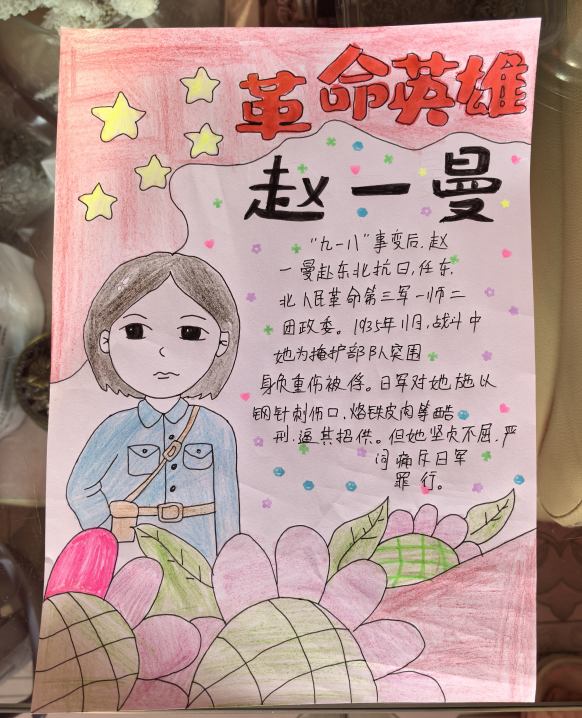 革命英雄
赵一曼
“九一八”事变后,赵
一曼赴东北抗日,任东
北人民革命第三军一师二
团政委。1935年11月,战斗中
她为掩护部队突围
身负重伤被俘。日军对她施以
钢针刺伤口、烙铁皮肉等酷
刑,逼其招供。但她坚贞不屈,严
词痛斥日军
罪行。